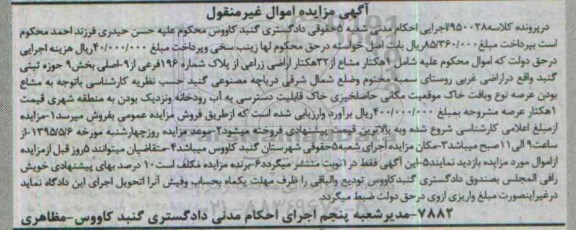 آگهی مزایده اموال غیرمنقول
درپرونده کلاسه ۹۵۰۰۲۸ اجرایی احکام مدنی شعبه ۵ حقوقی دادگستری گنبد کاووس محکوم علیه حسن حیدری فرزند احمد محکوم
است بپرداخت مبلغ ۸۵/۳۶۰/۰۰۰ ریال بابت اصل خواسته درحق محکوم لها زینب سخی وپرداخت مبلغ ۴۰/۰۰۰/۰۰۰ ریال هزینه اجرایی
درحق دولت که اموال محکوم علیه شامل ۱هکتار مشاع از ۳۲هکتار اراضی زراعی از پلاک شماره ۱۹۶فرعی از ۹-اصلی بخش ۹ حوزه ثبتی
گنبد واقع دراراضی غربی روستای سمیه مختوم وضلع شمال شرقی دریاچه مصنوعی گنبد حسب نظریه کارشناسی باتوجه به مشاع
بودن عرصه نوع وبافت خاک موقعیت مکانی حاصلخیزی خاک قابلیت دسترسی به آب رودخانه ونزدیک بودن به منطقه شهری قیمت
۱هکتار عرصه مشروحه بمبلغ ۴۰۰/۰۰۰/۰۰۰ ریال برآورد وارزیابی شده است که ازطریق فروش مزایده عمومی بفروش میرسد ۱-مزایده
ازمبلغ اعلامی کارشناسی شروع شده وبه بالاترین قیمت پیشنهادی فروخته میشود ۲-موعد مزایده روزچهارشنبه مورخه ۱۳۹۵/۵/۶-از
ساعت ۹ الی ۱۱ صبح میباشد ۳-مکان مزایده اجرای شعبه ۵حقوقی شهرستان گنبد کاووس میباشد ۴-متقاضیان میتوانند ۵روز قبل ازمزایده
ازاموال مورد مزایده بازدید نمایند ۵-این آگهی فقط در ۱نوبت منتشر میگردد ۶-برنده مزایده مکلف است ۱۰ درصد بهای پیشنهادی خویش
رافی المجلس بصندوق دادگستری گنبدکاووس تودیع والباقی را ظرف مهلت یکماه بحساب وفیش آنرا تحویل اجرای این دادگاه نماید
درغیراینصورت مبلغ واریزی ازوی درحق دولت ضبط میگردد
۷۸۸۲-مدیرشعبه پنجم اجرای احکام مدنی دادگستری گنبد کاووس-مظاهری